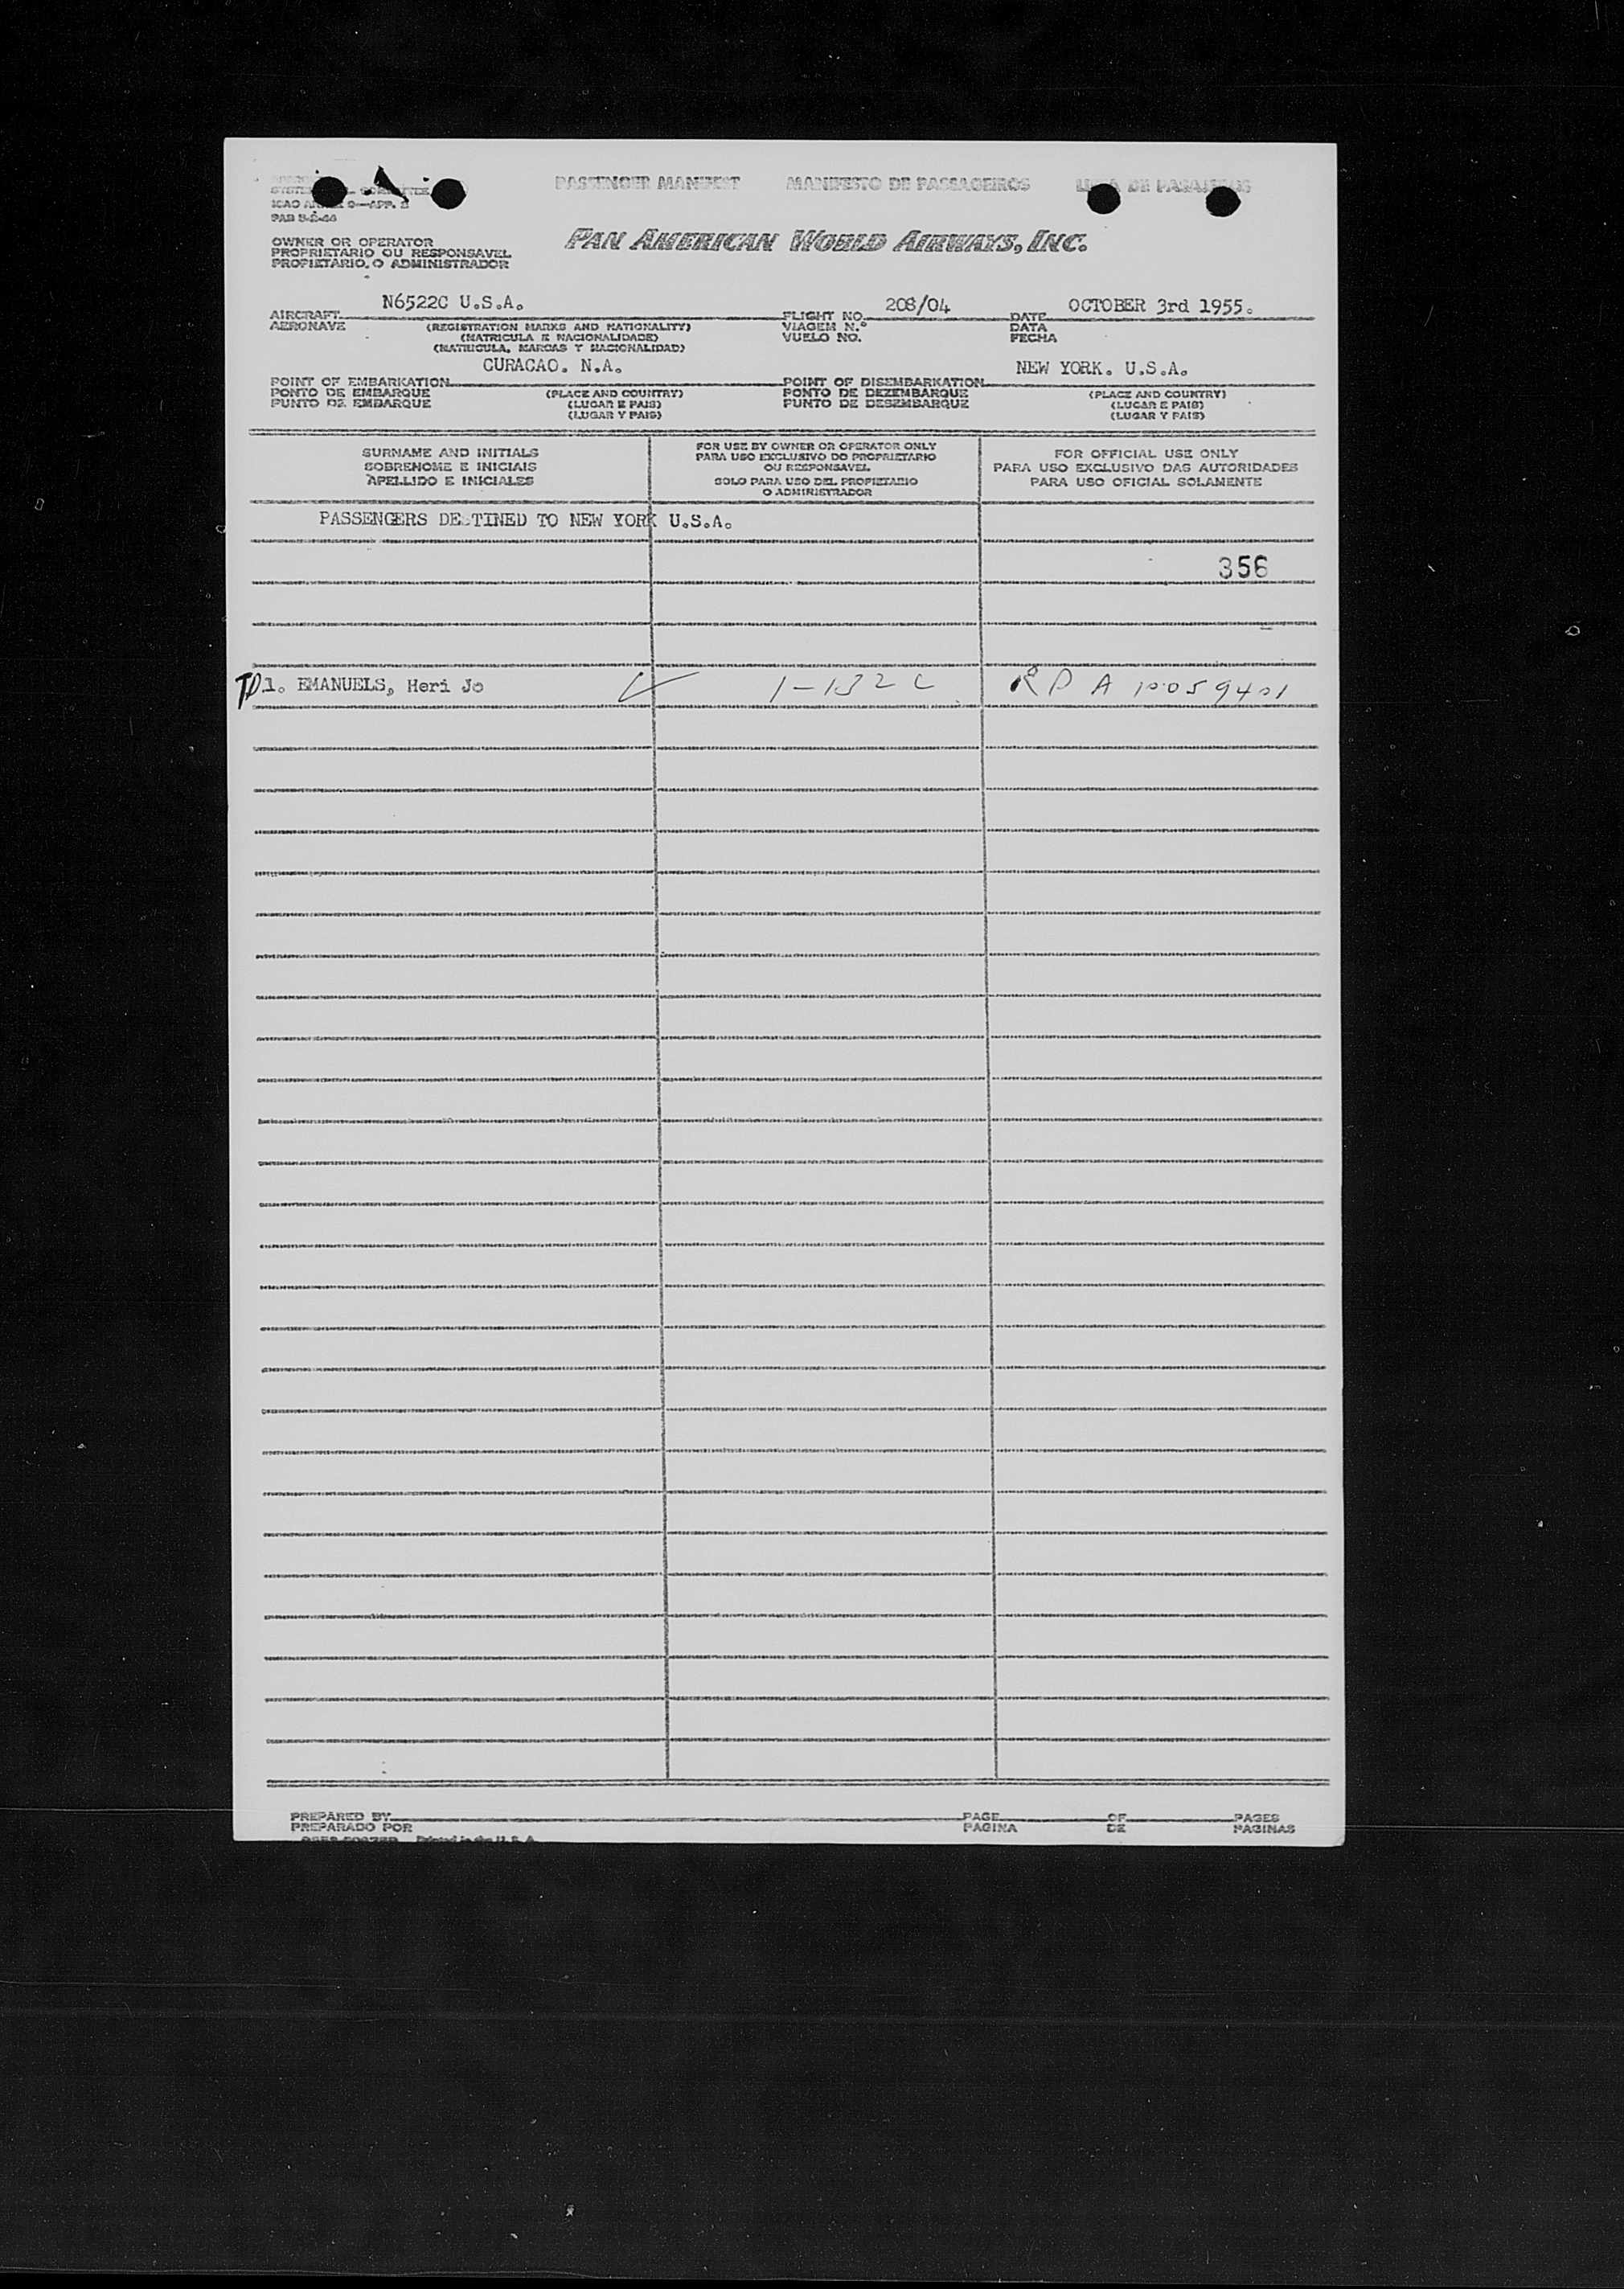 PASSENGER MANIFEST MANIFESTO DE PASSAGEIROS LISTA DE PASAJEROS
ICAO
PAB
OWNER OR OPERATOR
PROPRIETARIO OU RESPONSAVEL
PROPIETARIO, O ADMINISTRADOR
PAN AMERICAN WORLD AIRWAYS, INC.
N6522C U.S.A. 208/04 OCTOBER 3rd 1955.
AIRCRAFT FLIGHT NO. DATE
AERONAVE (REGISTRATION MARKS AND NATIONALITY) VIAGEM N.º DATA
(MATRICULA E NACIONALIDADE) VUELO NO. FECHA
(MATRICULA, MARCAS Y NACIONALIDAD)
CURACAO. N.A. NEW YORK. U.S.A.
POINT OF EMBARKATION POINT OF DISEMBARKATION
PONTO DE EMBARQUE (PLACE AND COUNTRY) PONTO DE DEZEMBARQUE (PLACE AND COUNTRY)
PUNTO DE EMBARQUE (LUGAR E PAIS) PUNTO DE DESEMBARQUE (LUGAR E PAIS)
(LUGAR Y PAIS) (LUGAR Y PAIS)
SURNAME AND INITIALS
SOBRENOME E INICIAIS
APELLIDO E INICIALES
FOR USE BY OWNER OR OPERATOR ONLY
PARA USO EXCLUSIVO DO PROPRIETARIO
OU RESPONSAVEL
SOLO PARA USO DEL PROPIETARIO
O ADMINISTRADOR
FOR OFFICIAL USE ONLY
PARA USO EXCLUSIVO DAS AUTORIDADES
PARA USO OFICIAL SOLAMENTE
PASSENGERS DESTINED TO NEW YORK U.S.A.
356
1. EMANUELS, Heri Jo RPA 10059401
PREPARED BY PAGE OF PAGES
PREPARADO POR PAGINA DE PAGINAS
Printed in the U.S.A.